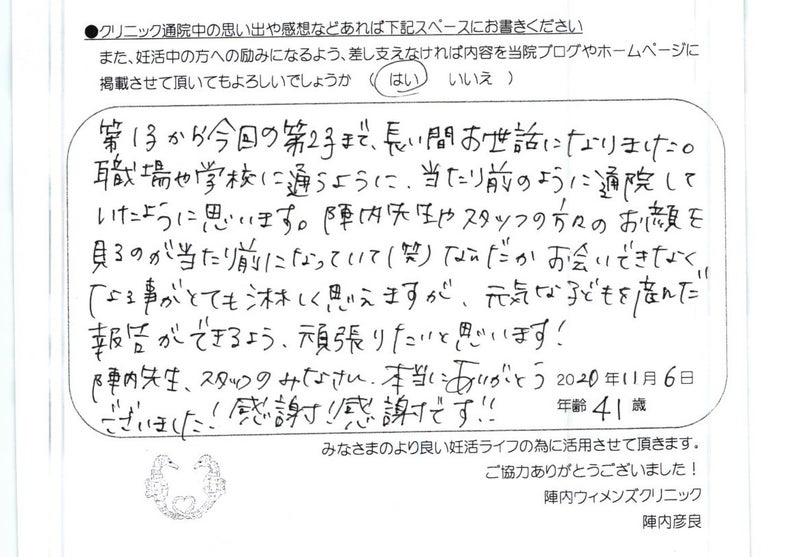 ●クリニック通院中の思い出や感想などあれば下記スペースにお書きください
また、妊活中の方への励みになるよう、差し支えなければ内容を当院ブログやホームページに
掲載させて頂いてもよろしいでしょうか （ はい　いいえ ）
第1子から今回の第2子まで、長い間お世話になりました。
職場や学校に通うように、当たり前のように通院して
いたように思います。陣内先生やスタッフの方々のお顔を
見るのが当たり前になっていて(笑)なんだかお会いできなく
なる事がとても淋しく思えますが、元気な子どもを産んだ
報告ができるよう、頑張りたいと思います！
陣内先生、スタッフのみなさん、本当にありがとう
ございました！感謝！感謝です!!
2020年11月6日
年齢 41 歳
みなさまのより良い妊活ライフの為に活用させて頂きます。
ご協力ありがとうございました！
陣内ウィメンズクリニック
陣内彦良